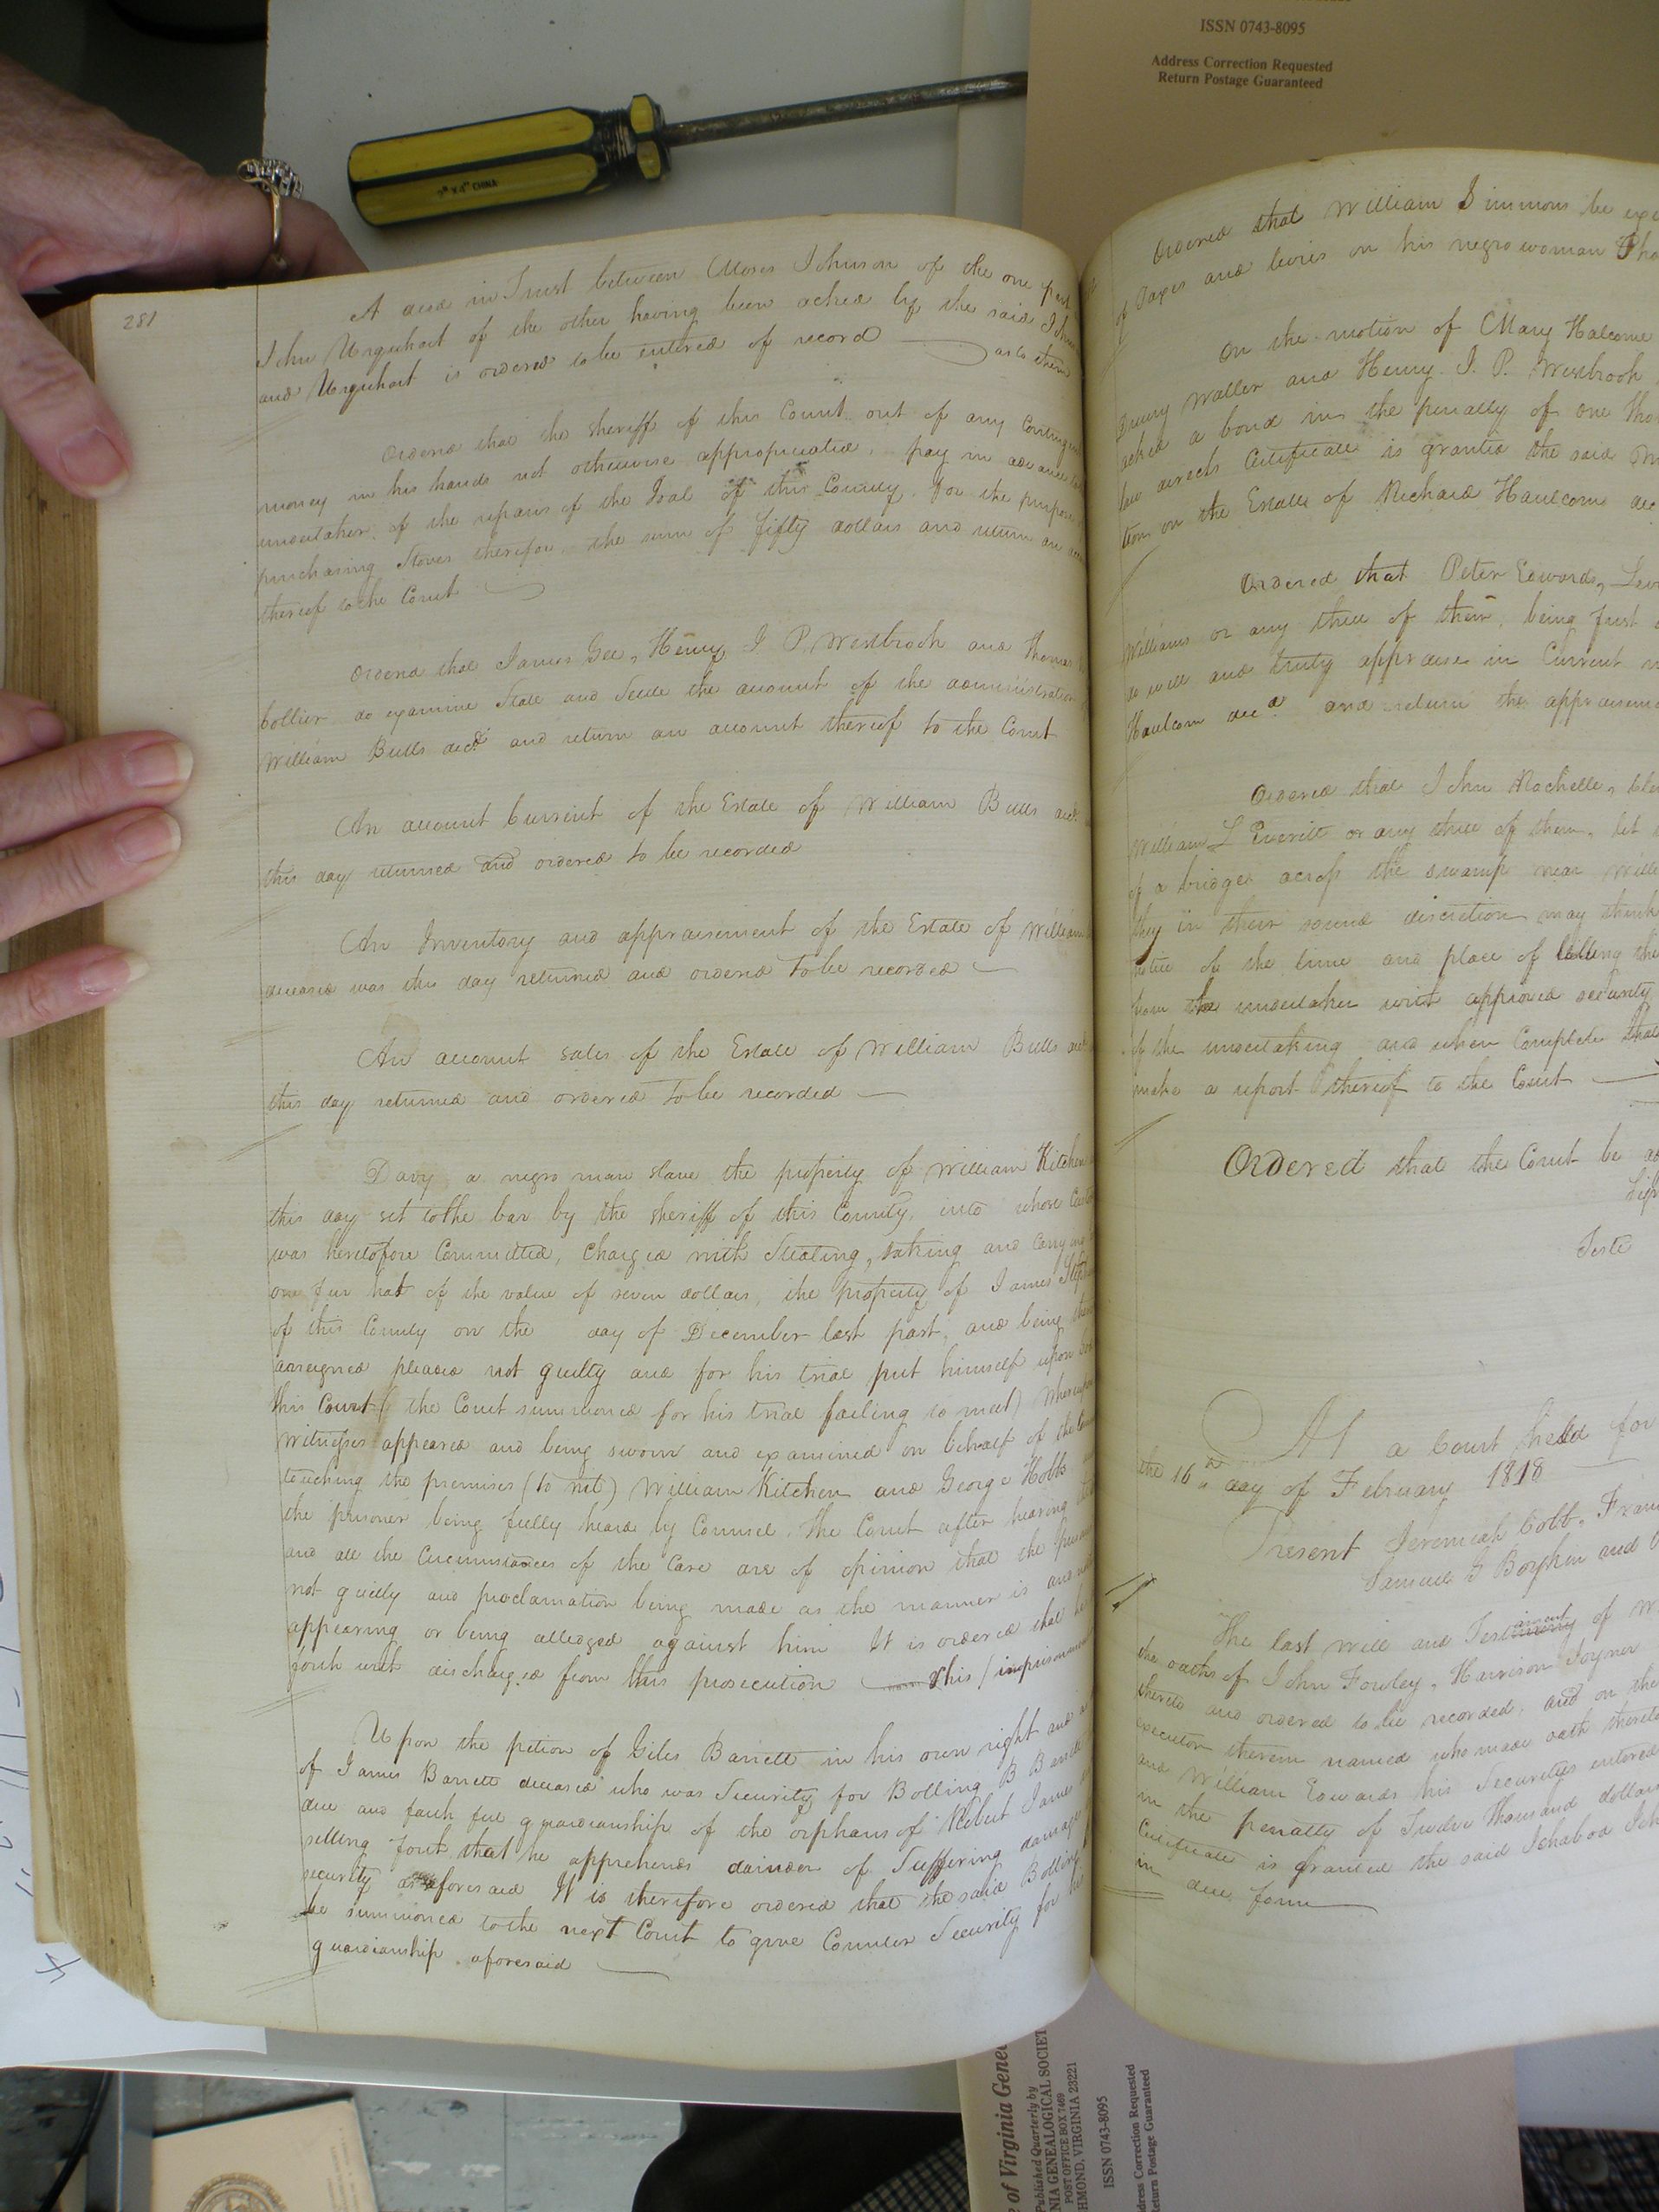 ISSN 0743-8095
Address Correction Requested
Return Postage Guaranteed
CHINA
281
A deed in Trust between Moses Johnson of the one part
John Urquhart of the other having been acked by the said
and Urquhart is ordered to be entered of record as to them
Ordered that the sheriff of this County out of any
money in his hands not otherwise appropriated, pay in advance to
undertaker of the repairs of the Goal of this County, for the purpose
purchasing Stoves therefor the sum of fifty dollars and return an
thereof to the Court
Ordered that James Gee, Henry J. P. Westbrook and Thomas
Collier do examine State and Settle the account of the administration
William Butts decd and return an account thereof to the Court
An account Current of the Estate of William Butts
this day returned and ordered to be recorded
An Inventory and appraisement of the Estate of William
deceased was this day returned and ordered to be recorded
An account sales of the Estate of William Butts
this day returned and ordered to be recorded
Davy a negro man slave the property of William Kitchen
this day set to the bar by the sheriff of this County, into whose
was heretofore Committed, charged with Stealing, taking and carrying
one fur hat of the value of seven dollars, the property of James
of this County on the day of December last past, and being
arreigned pleaded not guilty and for his trial put himself upon
this Court (the Court summoned for his trial failing to meet) Whereupon
Witnesses appeared and being sworn and examined on behalf of the
touching the premises (to wit) William Kitchen and George Hobbs
the prisoner being fully heard by Counsel. The Court after hearing
and all the Circumstances of the Case are of opinion that the
not guilty and proclamation being made as the manner is and
appearing or being alledged against him It is ordered that he
forth with discharged from this prosecution this imprisonment
Upon the petion of Giles Barrett in his own right and
of James Barrett deceased who was Security for Bolling B Barrett
due and faith ful guardianship of the orphans of Robert James
setting forth that he apprehends dainder of Suffering damage
security as aforesaid It is therefore ordered that the said Bolling
be summoned to the next Court to give Counter Security for his
guardianship aforesaid
Ordered that William Simmons be
of Taxes and levies on his negro woman
On the motion of Mary Halcome
Drury Waller and Henry J. P. Westbrook
acked a bond in the penalty of one
law directs Certificate is granted the said
tion on the Estate of Richard Haulcome
Ordered that Peter Edwards,
Williams or any three of them, being first
do well and truly appraise in Current
Haulcom decd and return the
Ordered that John Rochelle,
William L Everitt or any three of them, let
of a bridge across the swamp near
they in their sound discretion may think
notice of the time and place of letting
from the undertaker with approved security
of the undertaking and when Complete
make a report thereof to the Court
Ordered that the Court be
Teste
At a Court held for
the 16th day of February 1818
Present Jeremiah Cobb,
Samuel B Boykin and
The last will and Testament of
the oaths of John Fowley, Harrison Joyner
thereto and ordered to be recorded, and on the
executor therein named who made oath thereto
and William Edwards his Securities entered
in the penalty of Twelve thousand dollars
Certificate is granted the said Ichabod
in due form
of Virginia
Published Quarterly by
GENEALOGICAL SOCIETY
POST OFFICE BOX 7469
VIRGINIA 23221
ISSN 0743-8095
Address Correction Requested
Return Postage Guaranteed